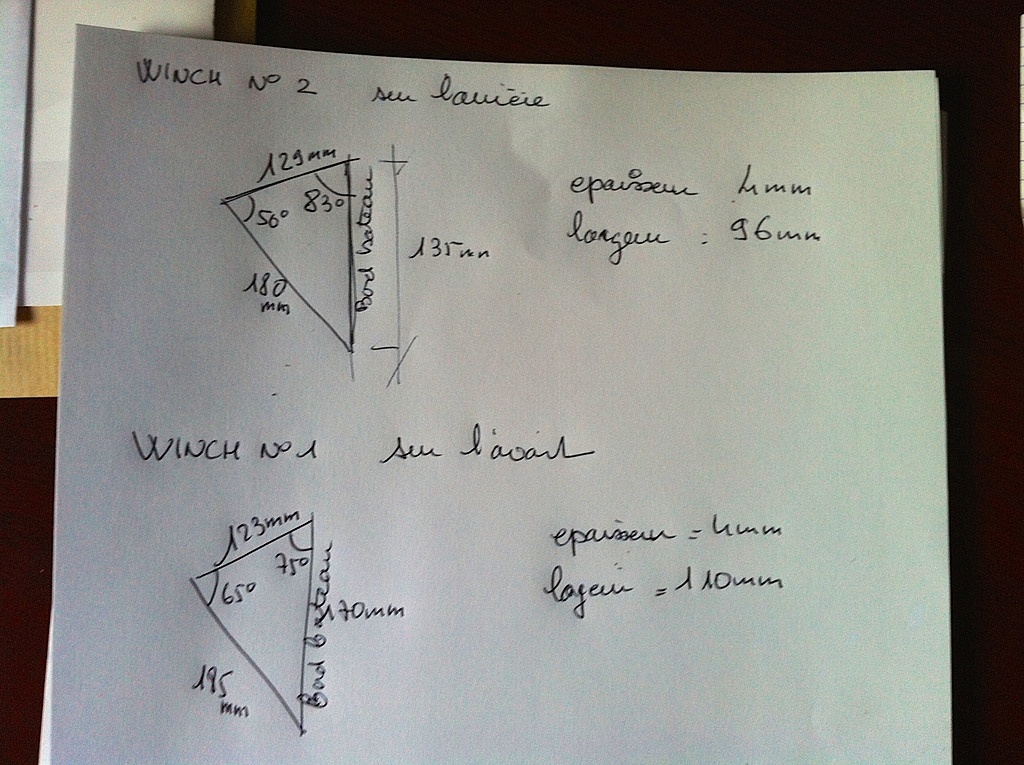 WINCH N° 2 sur l'arrière
129mm
83°
50°
Bord bateau
135mm
180
mm
epaisseur 4mm
largeur : 96mm
WINCH N°1 sur l'avant
123mm
75°
65°
Bord bateau
170mm
195
mm
epaisseur = 4mm
largeur = 110mm